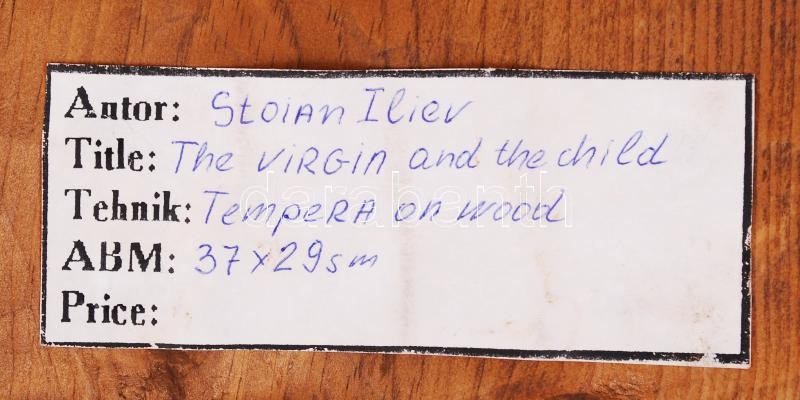 Autor: Stoian Iliev
Title: The Virgin and the child
Tehnik: Tempera on wood
darabanth
ABM: 37x29sm
Price: